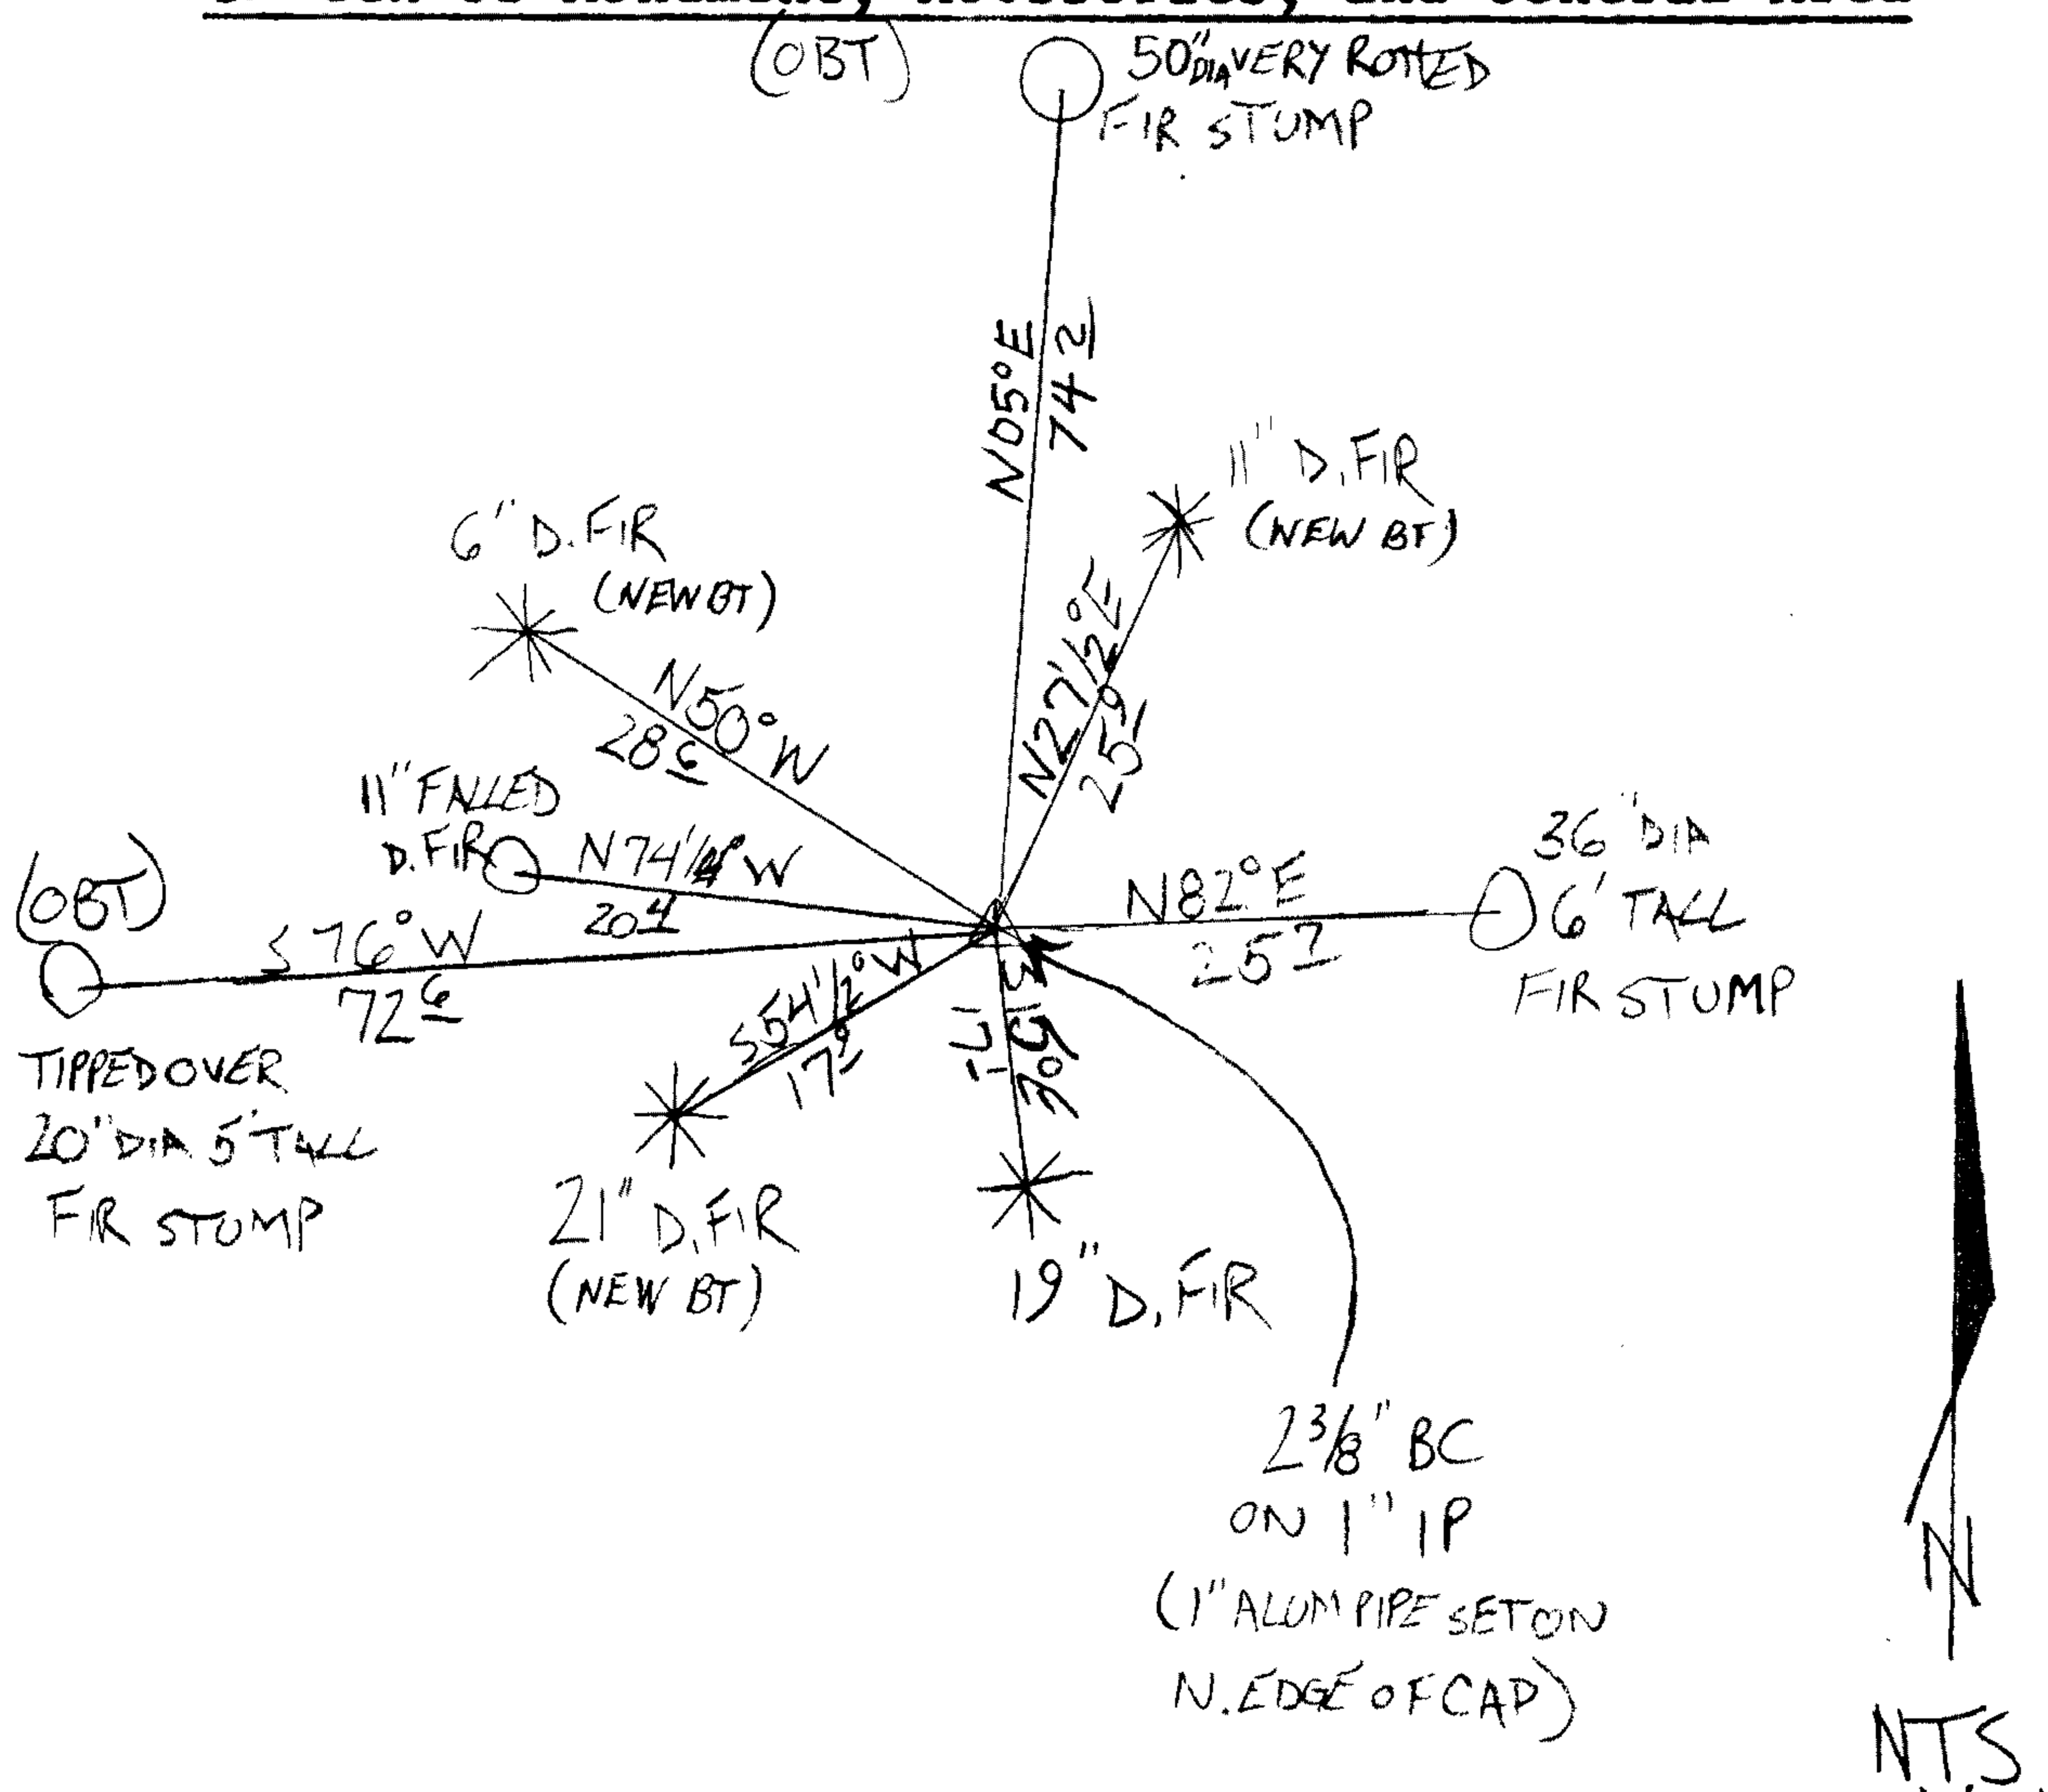 (OBT)
50" DIA VERY ROTTED
FIR STUMP
N05°E
74 2
11" D.FIR
(NEW BT)
6" D.FIR
(NEW BT)
N50°W
28 6
N27 1/2°E
25 9
11" FALLED
D.FIR
N74 1/4° W
20 4
36" DIA
6' TALL
FIR STUMP
N82°E
25 7
(OBT)
S76°W
72 6
TIPPED OVER
20" DIA 5' TALL
FIR STUMP
S54 1/2°W
17 9
21" D.FIR
(NEW BT)
19" D.FIR
2 3/8" BC
ON 1" IP
(1" ALUM PIPE SET ON
N. EDGE OF CAP)
N
N.T.S.